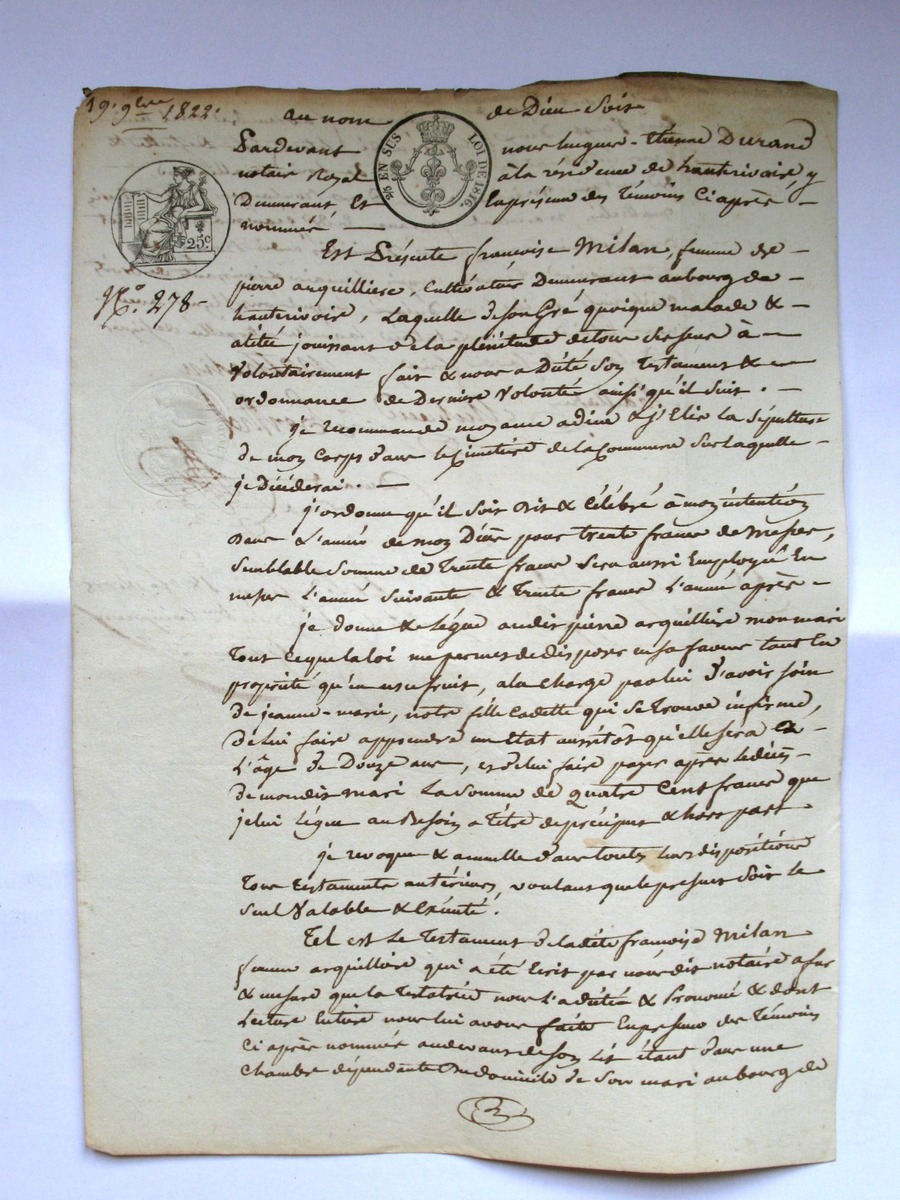 19. 9bre 1822.
au nom de Dieu Soit
EN SUS LOI DE 1816
Pardevant nous hugues-Etienne Durand
notaire Royal à la résidence de hauterivoire y
Demeurant Et En présence des Témoins Ci après
nommés
25c
Est Présente françoise Milan, femme de
N.o 278-
pierre arquilliere, Cultivateur Demeurant au bourg de
hauterivoire, Laquelle de son Gré quoique malade &
alitée jouissant de la plénitude de tous ses sens à
Volontairement fait & nous a Dicté Son Testament &
ordonnance de Derniere Volonté ainsi qu'il Suit.
je recommande mon ame a dieu & j'Elis la Sépulture
de mon Corps dans le Cimetière de la Commune Sur Laquelle
je Décèderai.
j'ordonne qu'il Soit Dit & Célébré à mon intention
Dans L'année de mon Décès pour trente francs de Messes,
Semblable Somme de Trente francs Sera aussi Employée En
messes L'année Suivante & Trente francs L'année après
je donne & Légue audit pierre arquilliere mon mari
Tout ce que la loi me permet de disposer en sa faveur tant En
propriété qu'en usufruit, a la Charge par lui D'avoir soin
De jeanne-marie, notre fille Cadette qui Se Trouve infirme,
De Lui faire apprendre un Etat aussitôt qu'elle sera
L'âge de Douze ans, et de lui faire payer après le décès
De mondit Mari La Somme de quatre Cent francs que
je lui Légue au Besoin a titre de préciput & hors part
je revoque & annulle dans toutes leurs dispositions
Tous Testaments antérieurs, voulant que le present Soit le
Seul Valable & Exécuté.
Tel est Le Testament de ladite françoise Milan
femme arquilliere qui a été Ecrit par nous dit notaire a fur
& mesure que la Testatrice nous L'a dicté & Prononcé & dont
Lecture Entiere nous lui avons faite En presence des Témoins
Ci après nommés au devant de son Lit étant dans une
Chambre dépendante du domicile de Son mari au bourg de